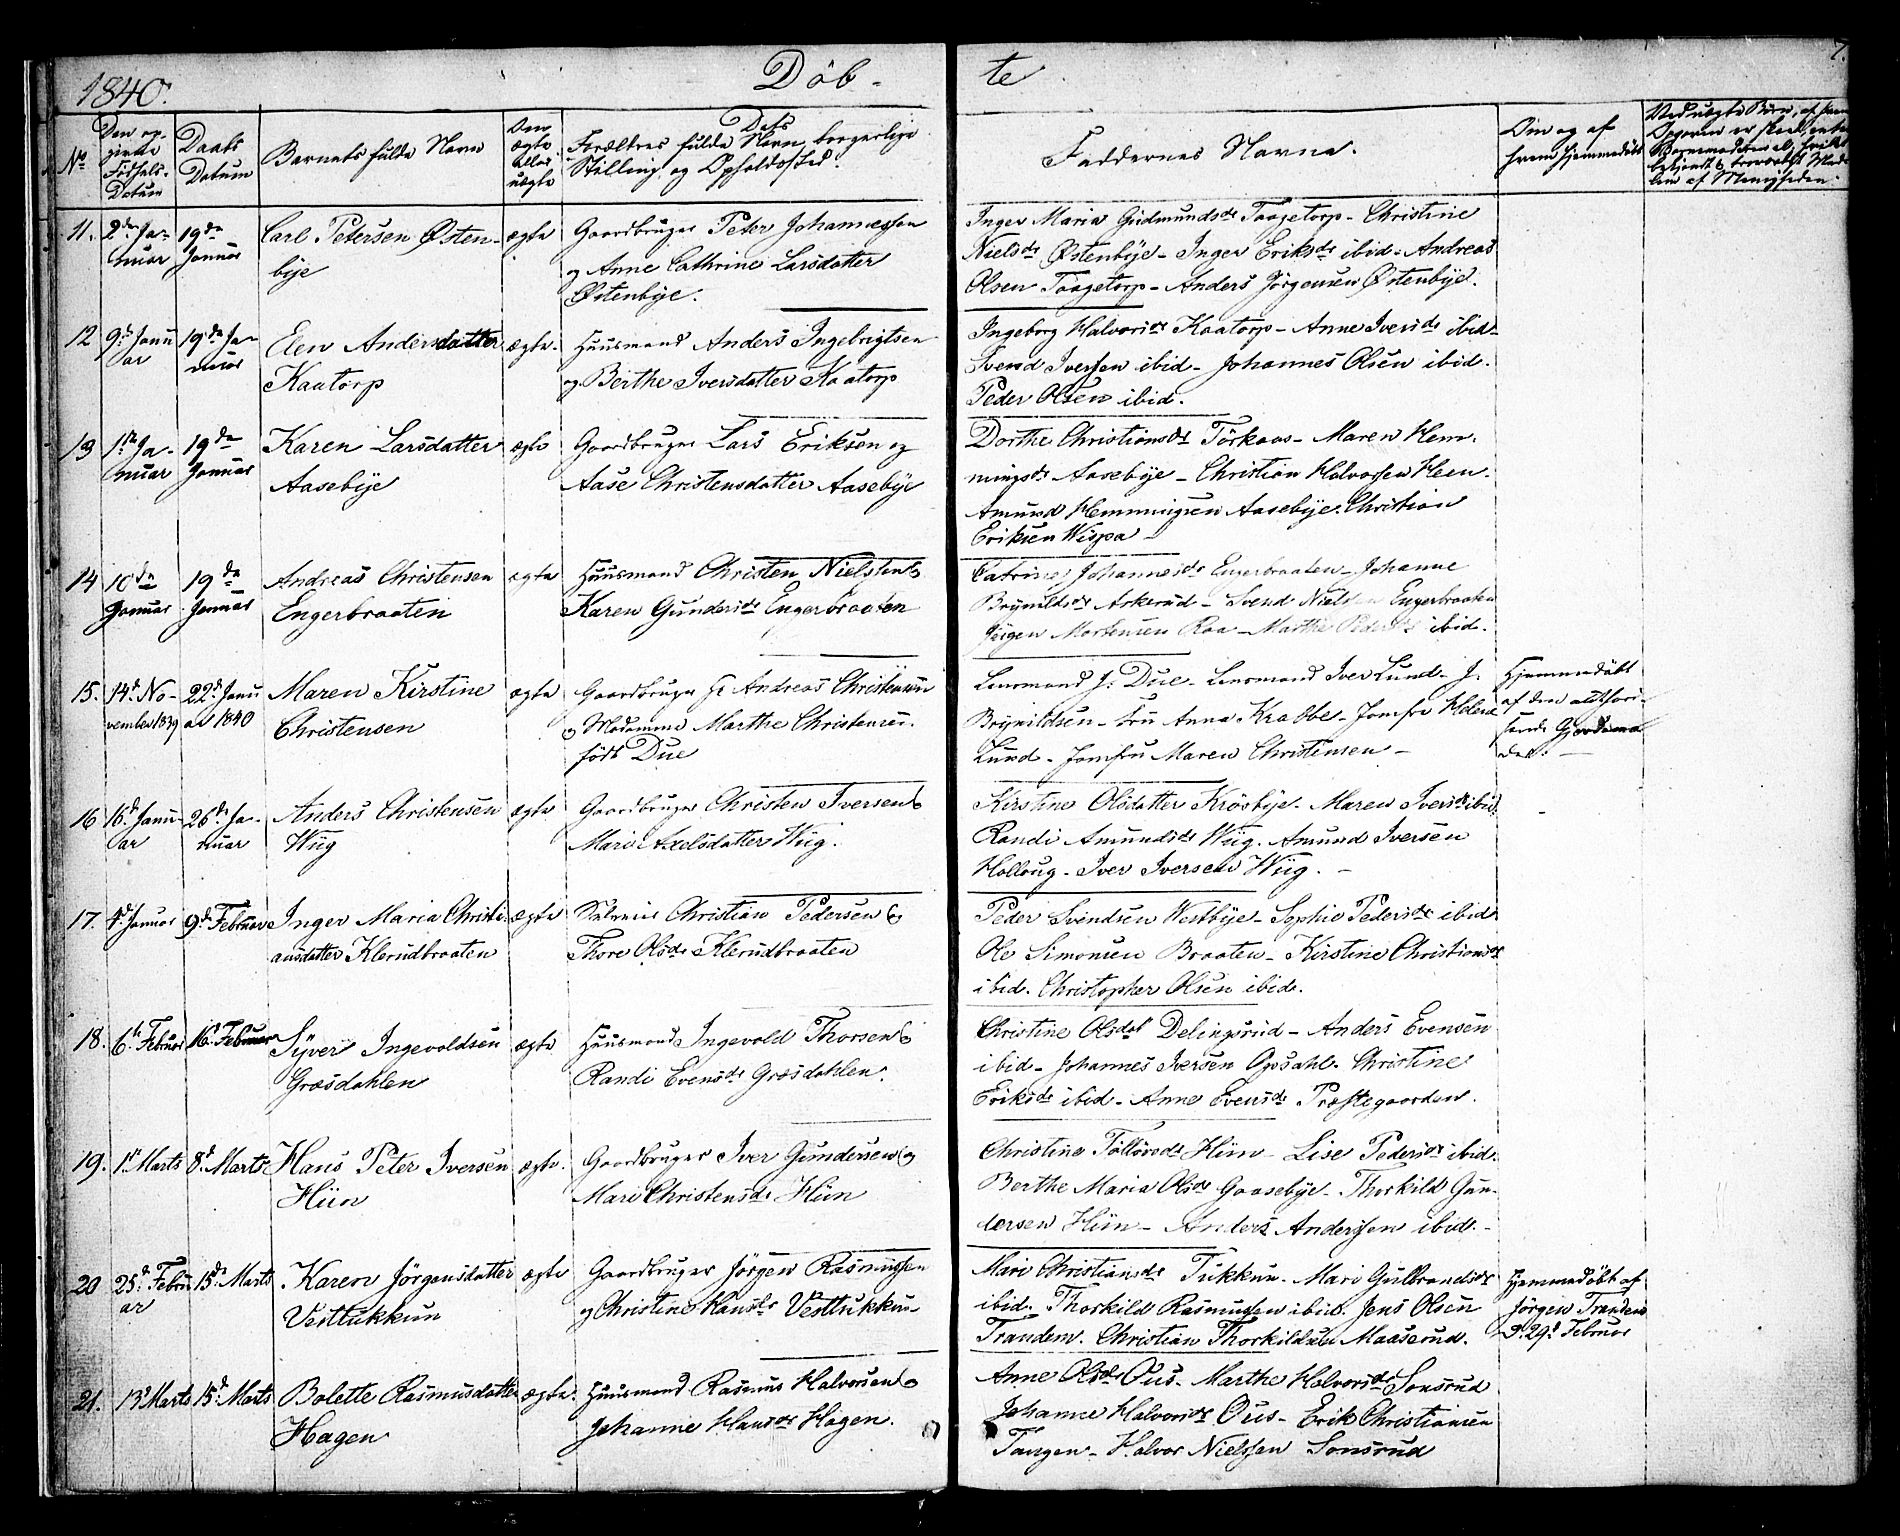 1840.
Döb-
te
7.
No
Den op-
givne
Födsels-
Datum
Daabs
Datum
Barnets fulde Navn
Om
ægte
eller
uægte
Dets
Forældres fulde Navn, borgerlige
Stilling og Opholdssted.
Faddernes Navne.
Om og af
hvem hjemmedöbt
11. 2de Ja- 19de Carl Petersen Østen- ægte Gaardbruger Peter Johannessen
nuar Januar bÿe og Anne Cathrine Larsdatter
Østenbÿe.
Inger Maria Gudmundsdr Taagetorp - Christine
Nielsdr Østenbÿe - Inger Eriksdr ibid - Andreas
Olsen Taagetorp - Anders Jörgensen Østenbÿe.
12 9de Janu 19de Ja- Elen Andersdatter ægte. Huusmand Anders Ingebrigtsen
ar nuar Kaatorp og Berthe Iversdatter Kaatorp
Ingeborg Halvorsdr Kaatorp - Anne Iversdr ibid -
Svend Iversen ibid - Johannes Olsen ibid.
Peder Olsen ibid.
13 1ste Ja- 19de Karen Larsdatter ægte Gaardbruger Lars Eriksen og
nuar Januar Aasebÿe Aase Christensdatter Aasebÿe
Dorthe Christiansdr Törkaas - Maren Hem-
mingsdr Aasebÿe - Christian Halvorsen Heen -
Amund Hemmingsen Aasebÿe. Christian
Eriksen Wispa -
14 10de 19de Andreas Christensen ægte Huusmand Christen Nielssen &
Januar Januar Engerbraaten Karen Gundersdr Engerbraaten
Catrine Johannesdr Engerbraaten - Johanne
Brÿnildsdr Askerud - Svend Nielsen Engerbraaten
Jörgen Mortensen Raa - Marthe Pedersdr ibid.
15. 14d No- 22d Janu Maren Kirstine ægte Gaardbruger Andreas Christensen
vember 1839 ar 1840 Christensen og Madamme Marthe Christensen
födt Due
Lensmand J. Due - Lensmand Iver Lund - J.
Brÿnildsen - Fru Anna Krabbe - Jomfru Helene
Lund - Jomfru Maren Christensen -
Hjemmedöbt
af den
16 16d Janu- 26de Ja- Anders Christensen ægte Gaardbruger Christen Iversen &
ar nuar Wiig Mari Axelsdatter Wiig.
Kirstine Olsdatter Krösbÿe - Maren Iversdr ibid.
Randi Amundsdr Wiig. Amund Iversen
Holloug - Iver Iversen Wiig. -
17. 4d Januar 9d Februar Inger Maria Christi- ægte Christian Pedersen &
ansdatter Klerudbraaten Thore Olsdr Klerudbraaten
Peder Svendsen Westbÿe - Sophie Pedersdr ibid
Ole Simonsen Braaten - Kirstine Christiansdr
ibid. Christopher Olsen ibid.
18. 6te Februar 16d Februar Sÿver Ingevoldsen ægte Huusmand Ingevold Thorsen &
Græsdahlen Randi Evensdr Græsdahlen.
Christine Olsdatr Delingsrud - Anders Evensen
ibid - Johannes Iversen Opsahl - Christine
Eriksdr ibid - Anne Evensdr Præstegaarden.
19. 1st Marts 8d Marts Hans Peter Iversen ægte. Gaardbruger Iver Gundersen &
Hün Mari Christensdr Hün
Christine Tollövsdr Hün - Lise Pedersdr ibid.
Berthe Maria Olsdr Gaasebÿe - Thorkild Gun-
dersen Hün - Anders Anderssen ibid. -
20 25d Febru 15de Marts Karen Jörgensdatter ægte Gaardbruger Jörgen Rasmussen
ar Vesttukkun og Christine Hansdr Vesttukkun
Mari Christiansdr Tukkun - Mari Gulbrandsdr
ibid. Thorkild Rasmussen ibid. Jens Olsen
Trandem. Christian Thorkildsen Maaserud.
Hjemmedöbt af
Jörgen Trandem
d. 29d Februar
21. 13d Marts 15d Marts Bolette Rasmusdatter ægte. Huusmand Rasmus Halvorsen &
Hagen Johanne Hansdr Hagen.
Anne Olsdr Ous - Marthe Halvorsdr Sonsrud
Johanne Halvorsdr Ous - Erik Christiansen
Tangen - Halvor Nielssen Sonsrud